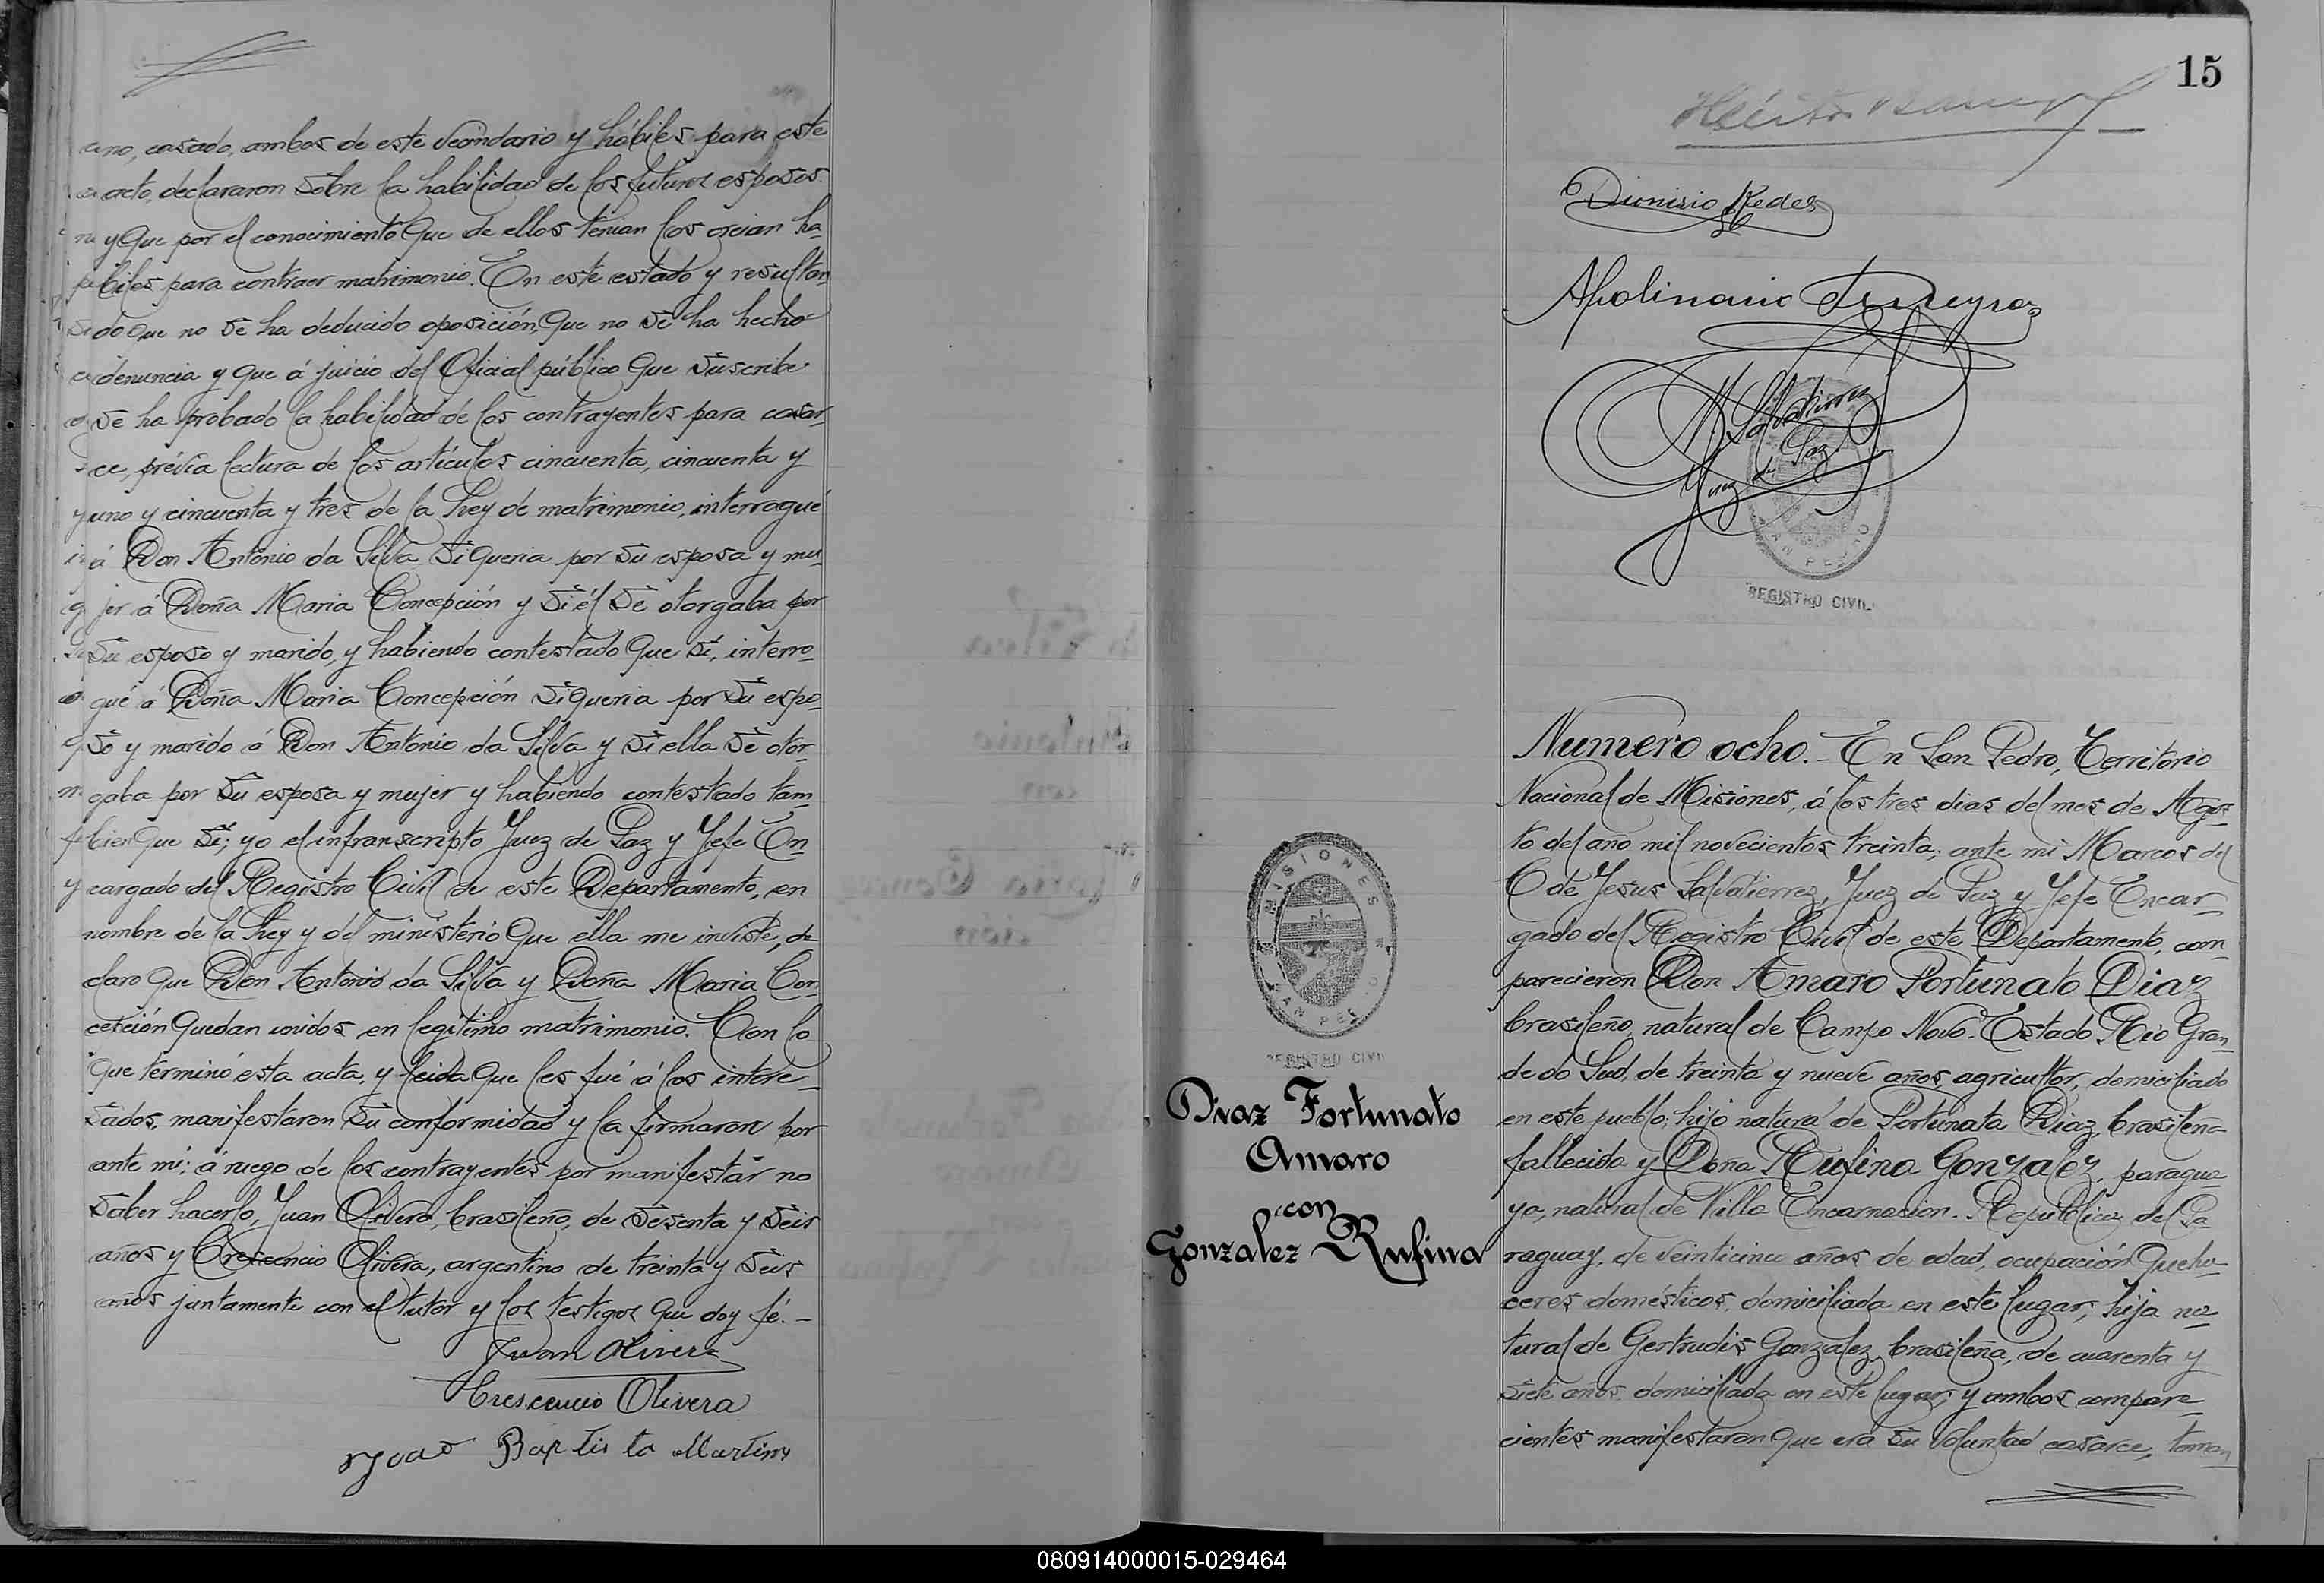 ano, casado, ambos de este vecindario y hábiles para este
acto, declararon sobre la habilidad de los futuros esposos
y que por el conocimiento que de ellos tenian los creian ha-
biles para contraer matrimonio. En este estado y resultan-
do que no se ha deducido oposición, que no se ha hecho
denuncia y que á juicio del Oficial público que suscribe
se ha probado la habilidad de los contrayentes para casar-
ce, prévia lectura de los artículos cincuenta, cincuenta y
uno y cincuenta y tres de la Ley de matrimonio, interrogué
á Don Antonio da Silva si queria por su esposa y mu-
jer á Doña Maria Concepción y si él se otorgaba por
su esposo y marido, y habiendo contestado que si, interro-
gué á Doña Maria Concepción si queria por su espo-
so y marido á Don Antonio da Silva y si ella se otor-
gaba por su esposa y mujer y habiendo contestado tam-
bien que si; yo el infranscripto Juez de Paz y Jefe En-
cargado del Registro Civil de este Departamento, en
nombre de la Ley y del ministerio que ella me inviste, de
claro que Don Antonio da Silva y Doña Maria Con-
cepción quedan unidos en legítimo matrimonio. Con lo
que terminó esta acta, y leida que les fué á los intere-
sados, manifestaron su conformidad y la firmaron por
ante mi; á ruego de los contrayentes por manifestar no
saber hacerlo, Juan Olivera, brasileño, de sesenta y seis
años y Crescencio Olivera, argentino de treinta y seis
años juntamente con el tutor y los testigos que doy fé.-
Juan Olivera
Crescencio Olivera
Joao Baptista Martins
15
Dionisio Kedes
Apolinario
M. Salvatierrez
Juez de Paz
SAN PEDRO
REGISTRO CIVIL
Numero ocho.- En San Pedro, Territorio
Nacional de Misiones, á los tres dias del mes de Agos-
to del año mil novecientos treinta; ante mi Marcos del
C de Jesus Salvatierrez, Juez de Paz y Jefe Encar-
gado del Registro Civil de este Departamento, com-
parecieron Don Amaro Fortunato Diaz
brasileño, natural de Campo Novo. Estado Rio Gran-
de do Sud, de treinta y nueve años, agricultor, domiciliado
en este pueblo; hijo natural de Fortunata Diaz, brasileña
fallecida y Doña Rufina Gonzalez, paragua
ya, natural de Villa Encarnasion. Republica del Pa
raguay, de veinticinco años de edad, ocupación queha-
ceres domésticos, domiciliada en este lugar; hija na-
tural de Gertrudis Gonzalez, brasileña, de cuarenta y
siete años, domiciliada en este lugar; y ambos compare-
cientes manifestaron que era su voluntad casarce, toman-
MISIONES
SAN PEDRO
REGISTRO CIVIL
Diaz Fortunato
Amaro
con
Gonzalez Rufina
080914000015-029464